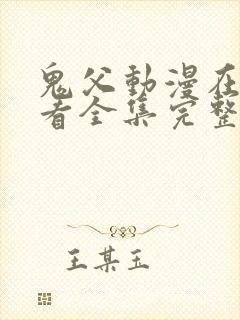 鬼父動漫在
看全集完整
王某玉